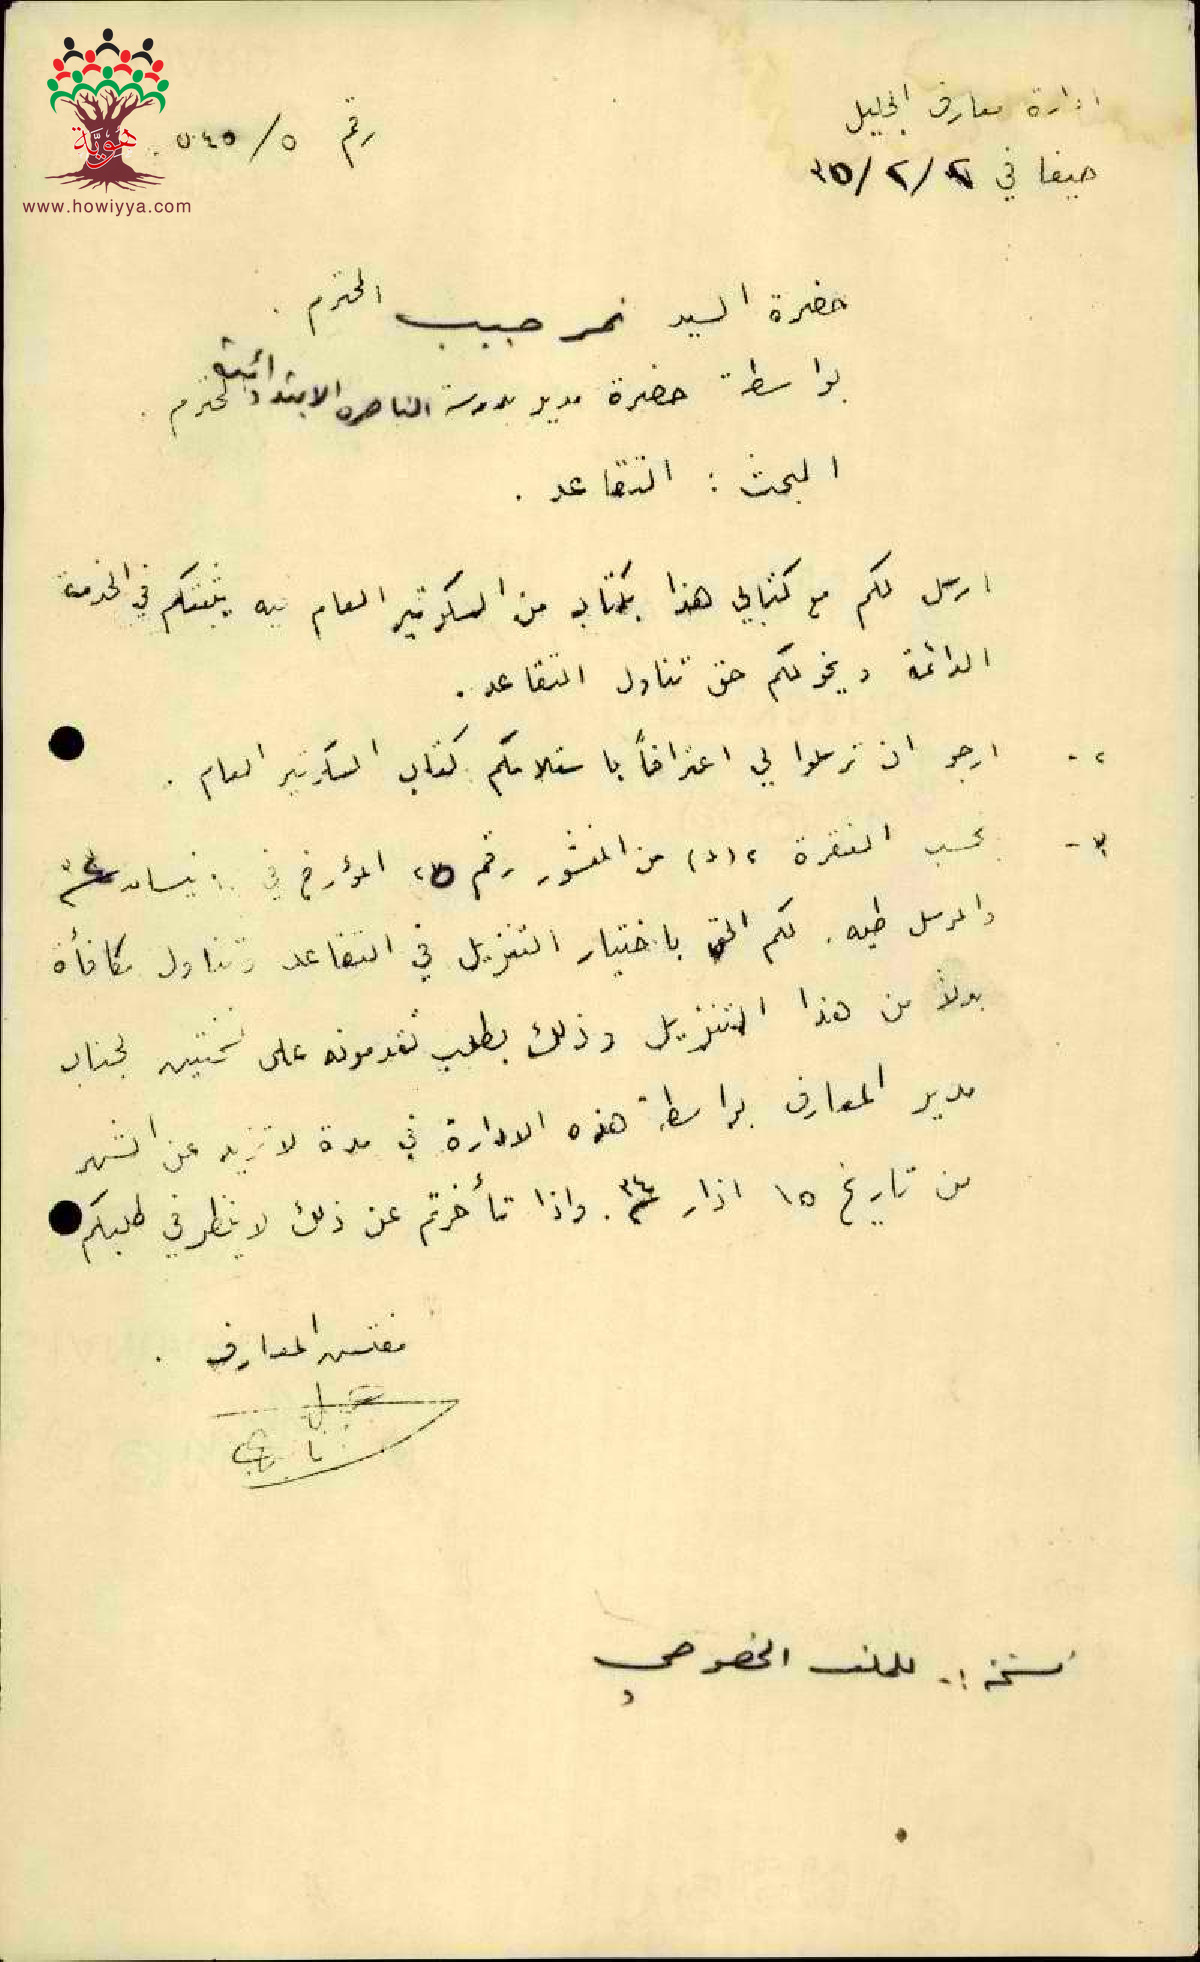 هويّة
www.howiyya.com
ادارة معارف الجليل
رقم ٥/
حيفا في ٢/٢/٣٥
حضرة السيد نمر حبيب المحترم .
بواسطة حضرة مدير مدرسة الناصره الابتدائية المحترم .
المبحث : التقاعد .
ارسل لكم مع كتابي هذا كتاب من السكرتير العام فيه يثبتكم في الخدمة
الدائمة ويخولكم حق تناول التقاعد .
٢- ارجو ان ترسلوا لي اعترافاً باستلامكم كتاب السكرتير العام .
٣- بحسب الفقرة ٢ (د) من المنشور رقم ٢٥ المؤرخ في ١٠ نيسان ٣٤
والمرسل طيه . لكم الحق باختيار التنزيل في التقاعد وتناول مكافأة
بدلاً من هذا التنزيل وذلك بطلب تقدمونه على نسختين لجناب
مدير المعارف بواسطة هذه الادارة في مدة لا تزيد عن الشهر
من تاريخ ١٥ اذار ٣٤ . واذا تأخرتم عن ذلك لا ينظر في طلبكم
مفتش المعارف .
نسخة :- للملف الخصوصي